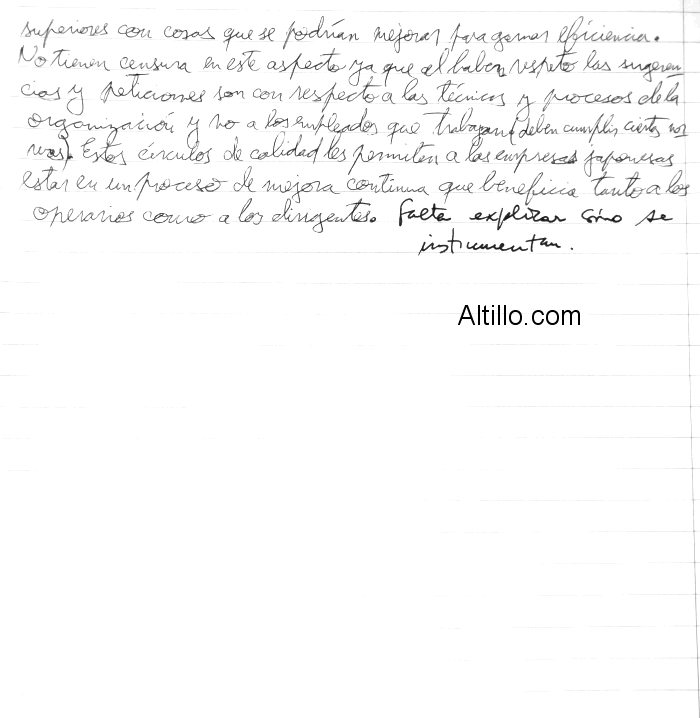 superiores con cosas que se podrían mejorar para ganar eficiencia.
No tienen censura en este aspecto ya que al haber respeto las sugeren-
cias y peticiones son con respecto a las técnicas y procesos de la
organización y no a los empleados que trabajan (deben cumplir ciertas nor
mas). Estos círculos de calidad les permiten a las empresas japonesas
estar en un proceso de mejora continua que beneficia tanto a los
operarios como a los dirigentes. Falta explicar cómo se
instrumentan.
Altillo.com